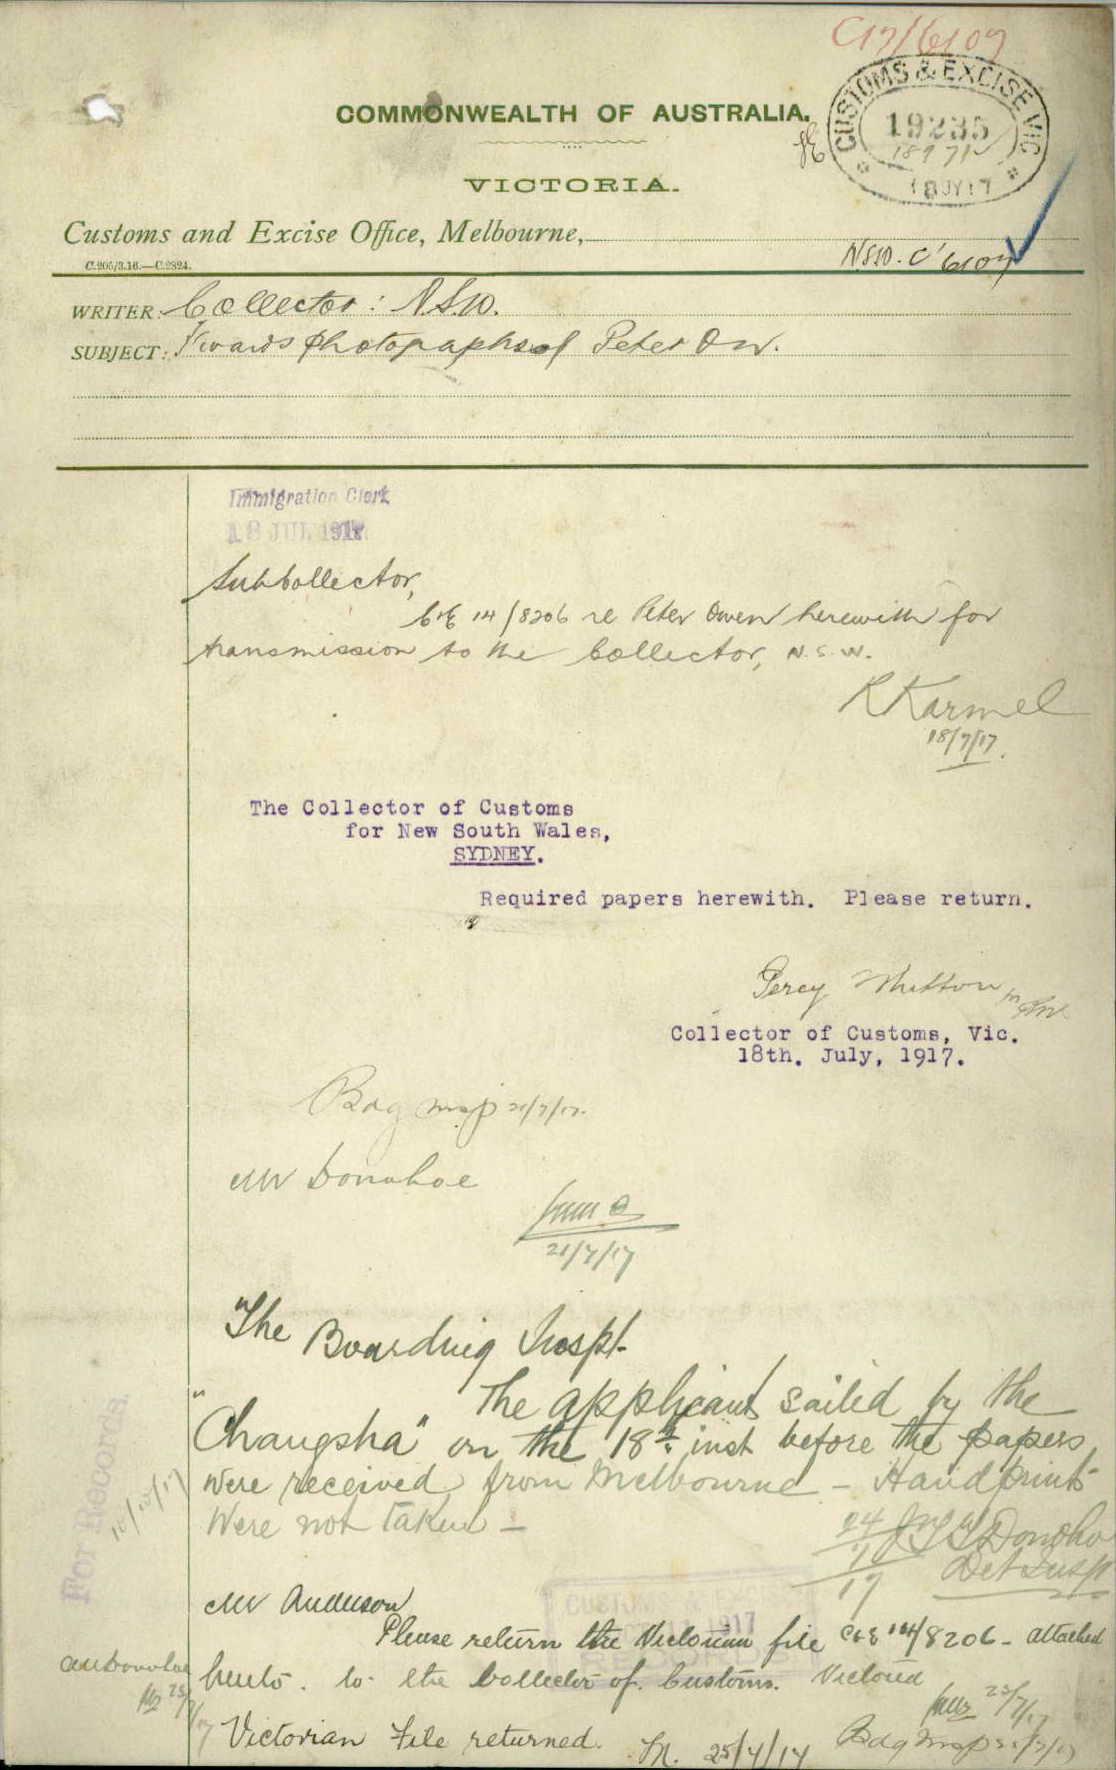 C17/6107
COMMONWEALTH OF AUSTRALIA.
CUSTOMS & EXCISE VIC
19235
18 JY 17
VICTORIA.
Customs and Excise Office, Melbourne,
C.206/3.16.—C.2824.
NSW. C'6107
WRITER: Collector: N.S.W.
SUBJECT: Forwards photographs of Peter Ow.
Immigration Clerk
18 JUL 1917
Subcollector,
C&E 14/8206 re Peter Owen herewith for
transmission to the Collector, N.S.W.
R Karmel
18/7/17.
The Collector of Customs
for New South Wales,
SYDNEY.
Required papers herewith. Please return.
Percy Whitton
Collector of Customs, Vic.
18th. July, 1917.
Bdg Insp 21/7/17.
Mr Donohoe
21/7/17
The Boarding Inspt.
The applicant sailed by the
"Changsha" on the 18th inst before the papers
were received from Melbourne - Handprints
were not taken -
24/7/17
Donohoe
Det Insp
For Records.
10/10/17
Mr Anderson
CUSTOMS & EXCISE
1917
RECORDS
Please return the Victorian file C&E 14/8206 - attached
hereto. to the Collector of Customs. Victoria
25/7/17
Bdg Insp 25/7/17
Victorian file returned. 25/7/17